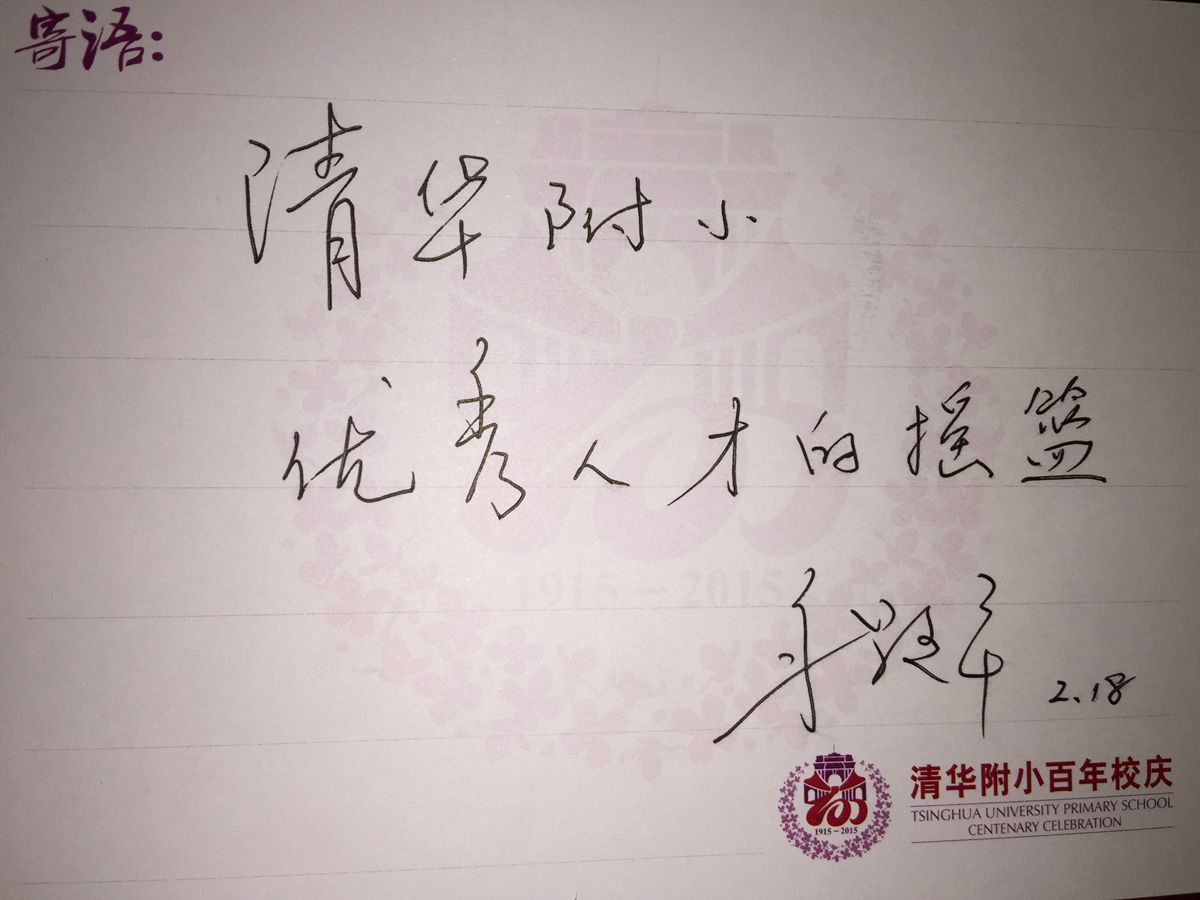 寄语:
清华附小
优秀人才的摇篮
2.18
1915-2015
1915-2015
清华附小百年校庆
TSINGHUA UNIVERSITY PRIMARY SCHOOL
CENTENARY CELEBRATION